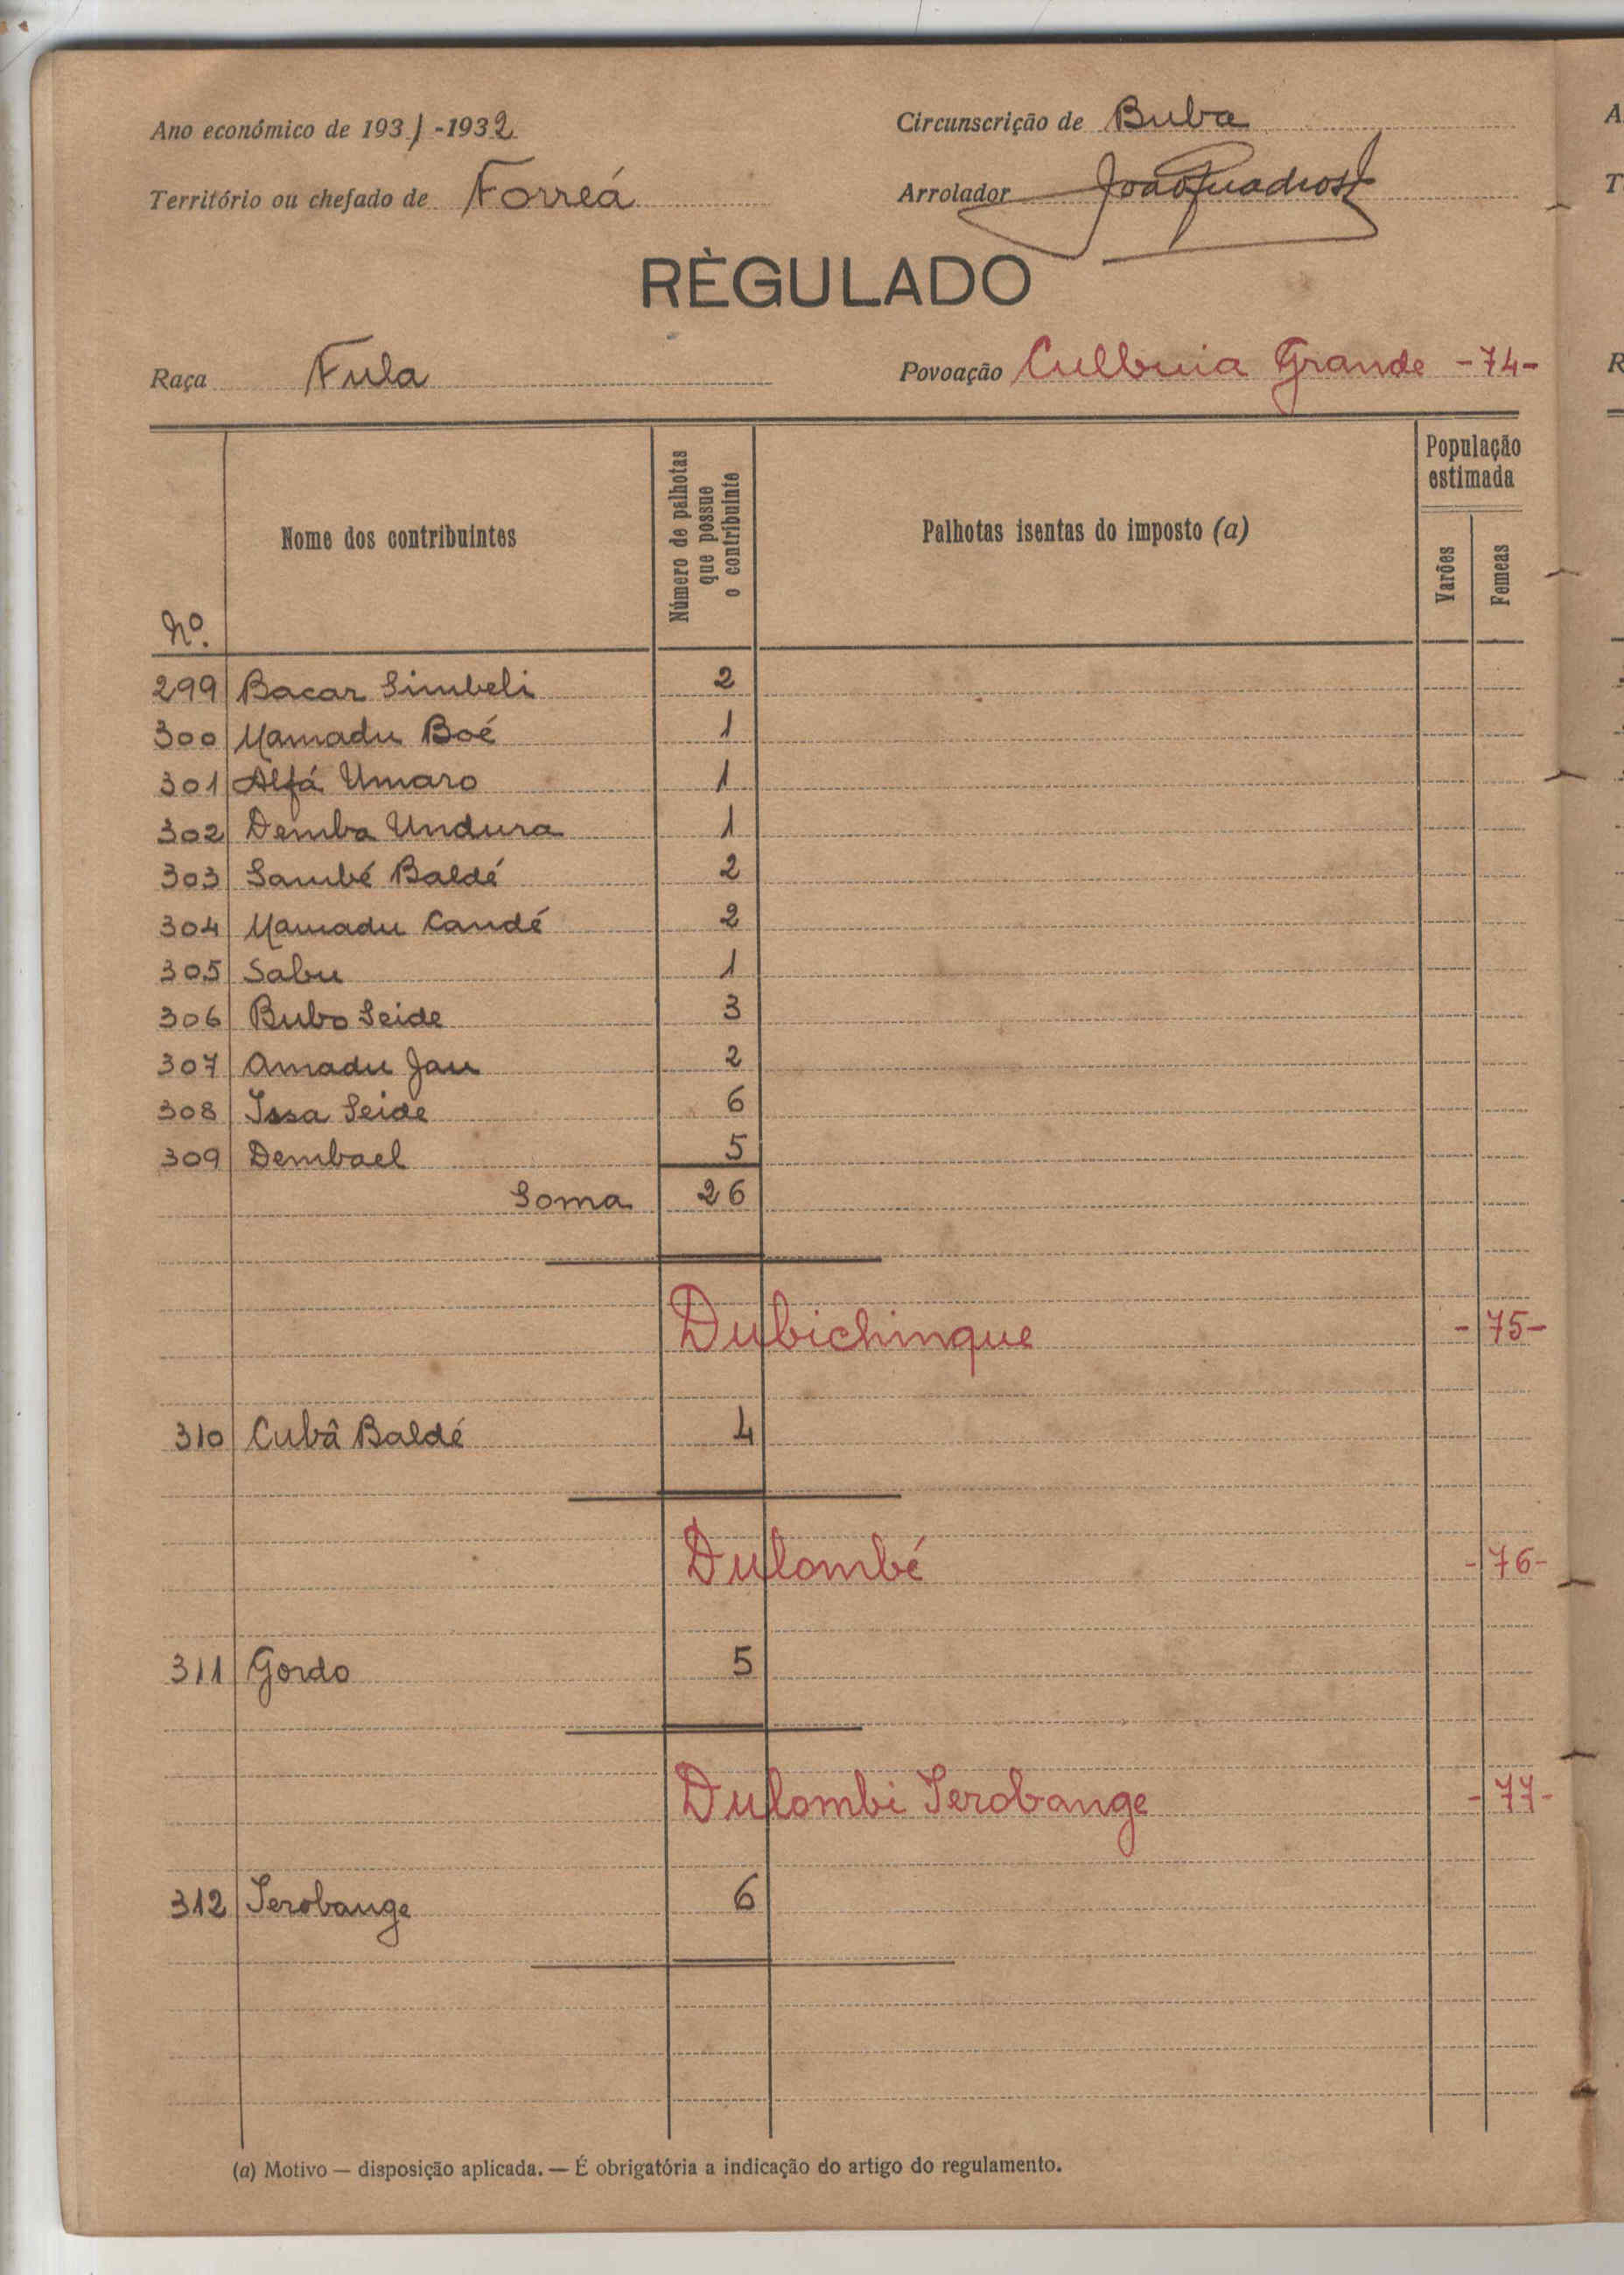 Ano económico de 1931-1932
Circunscrição de Buba
Território ou chefado de Forreá
Arrolador
RÈGULADO
Raça Fula
Povoação Culbuia Grande -74-
Nº.
Nome dos contribuintes
Número de palhotas que possue o contribuinte
Palhotas isentas do imposto (a)
População estimada
Varões
Femeas
299 Bacar Simbeli 2
300 Mamadu Boé 1
301 Alfá Umaro 1
302 Demba Undura 1
303 Sambé Baldé 2
304 Mamadu Candé 2
305 Sabu 1
306 Bubo Seide 3
307 Amadu Jau 2
308 Issa Seide 6
309 Dembael 5
Soma 26
Dubichinque -75-
310 Cubâ Baldé 4
Dulombé -76-
311 Gordo 5
Dulombi Serobange -77-
312 Serobange 6
(a) Motivo — disposição aplicada. — É obrigatória a indicação do artigo do regulamento.